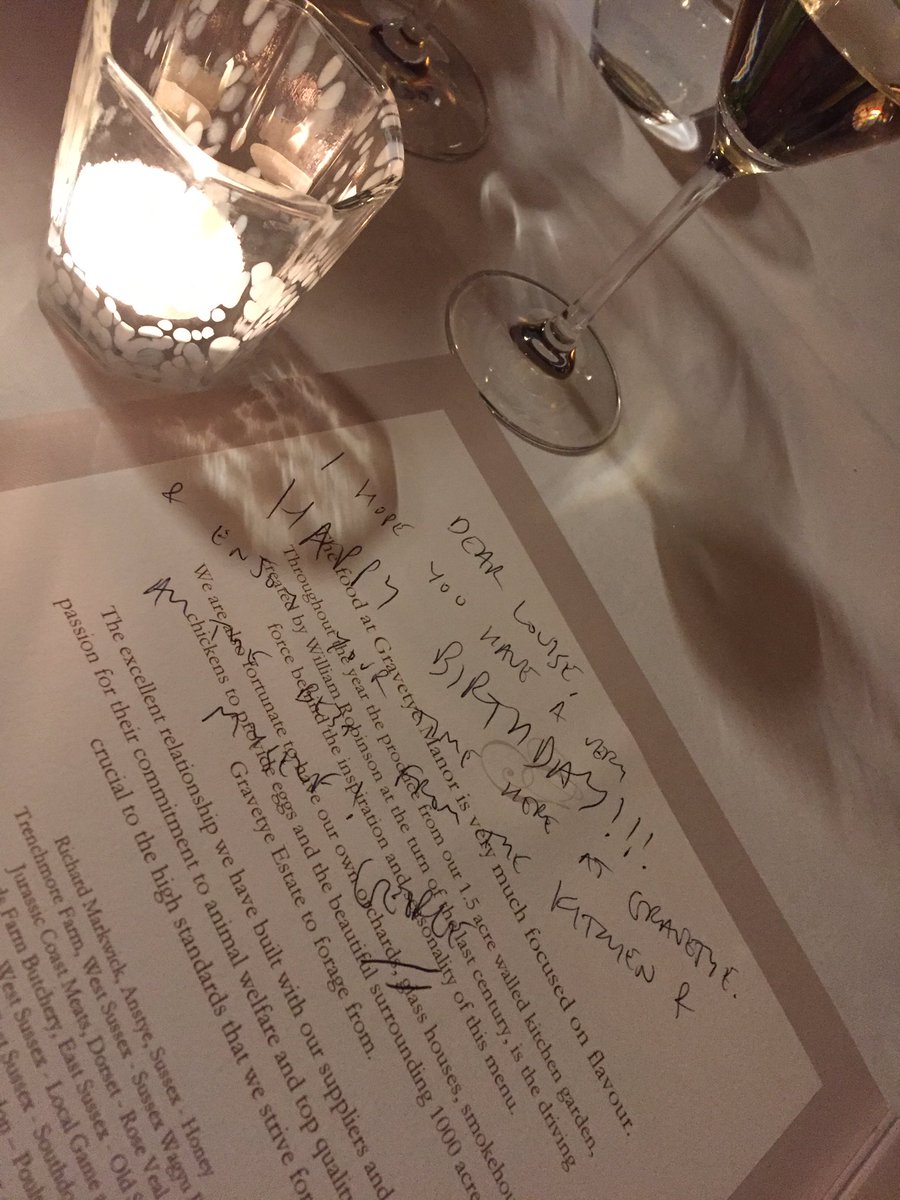 DEAR LOUISE,
I HOPE YOU HAVE A VERY
HAPPY BIRTHDAY!!!
& ENJOY YOUR TIME HERE AT GRAVETYE.
THE FROM THE KITCHEN &
The food at Gravetye Manor is very much focused on flavour.
Throughout the year the produce from our 1.5 acre walled kitchen garden,
created by William Robinson at the turn of the last century, is the driving
force behind the inspiration and seasonality of this menu.
We are also fortunate to have our own orchards, glass houses, smokehou
chickens to provide eggs and the beautiful surrounding 1000 acre
Gravetye Estate to forage from.
The excellent relationship we have built with our suppliers and
passion for their commitment to animal welfare and top qualit
crucial to the high standards that we strive for
Richard Markwick, Anstye, Sussex - Honey
Trenchmore Farm, West Sussex - Sussex Wagyu
Jurassic Coast Meats, Dorset - Rose Veal
Farm Butchery, East Sussex - Old S
West Sussex - Local Game
Sussex - Southdo
– Poul